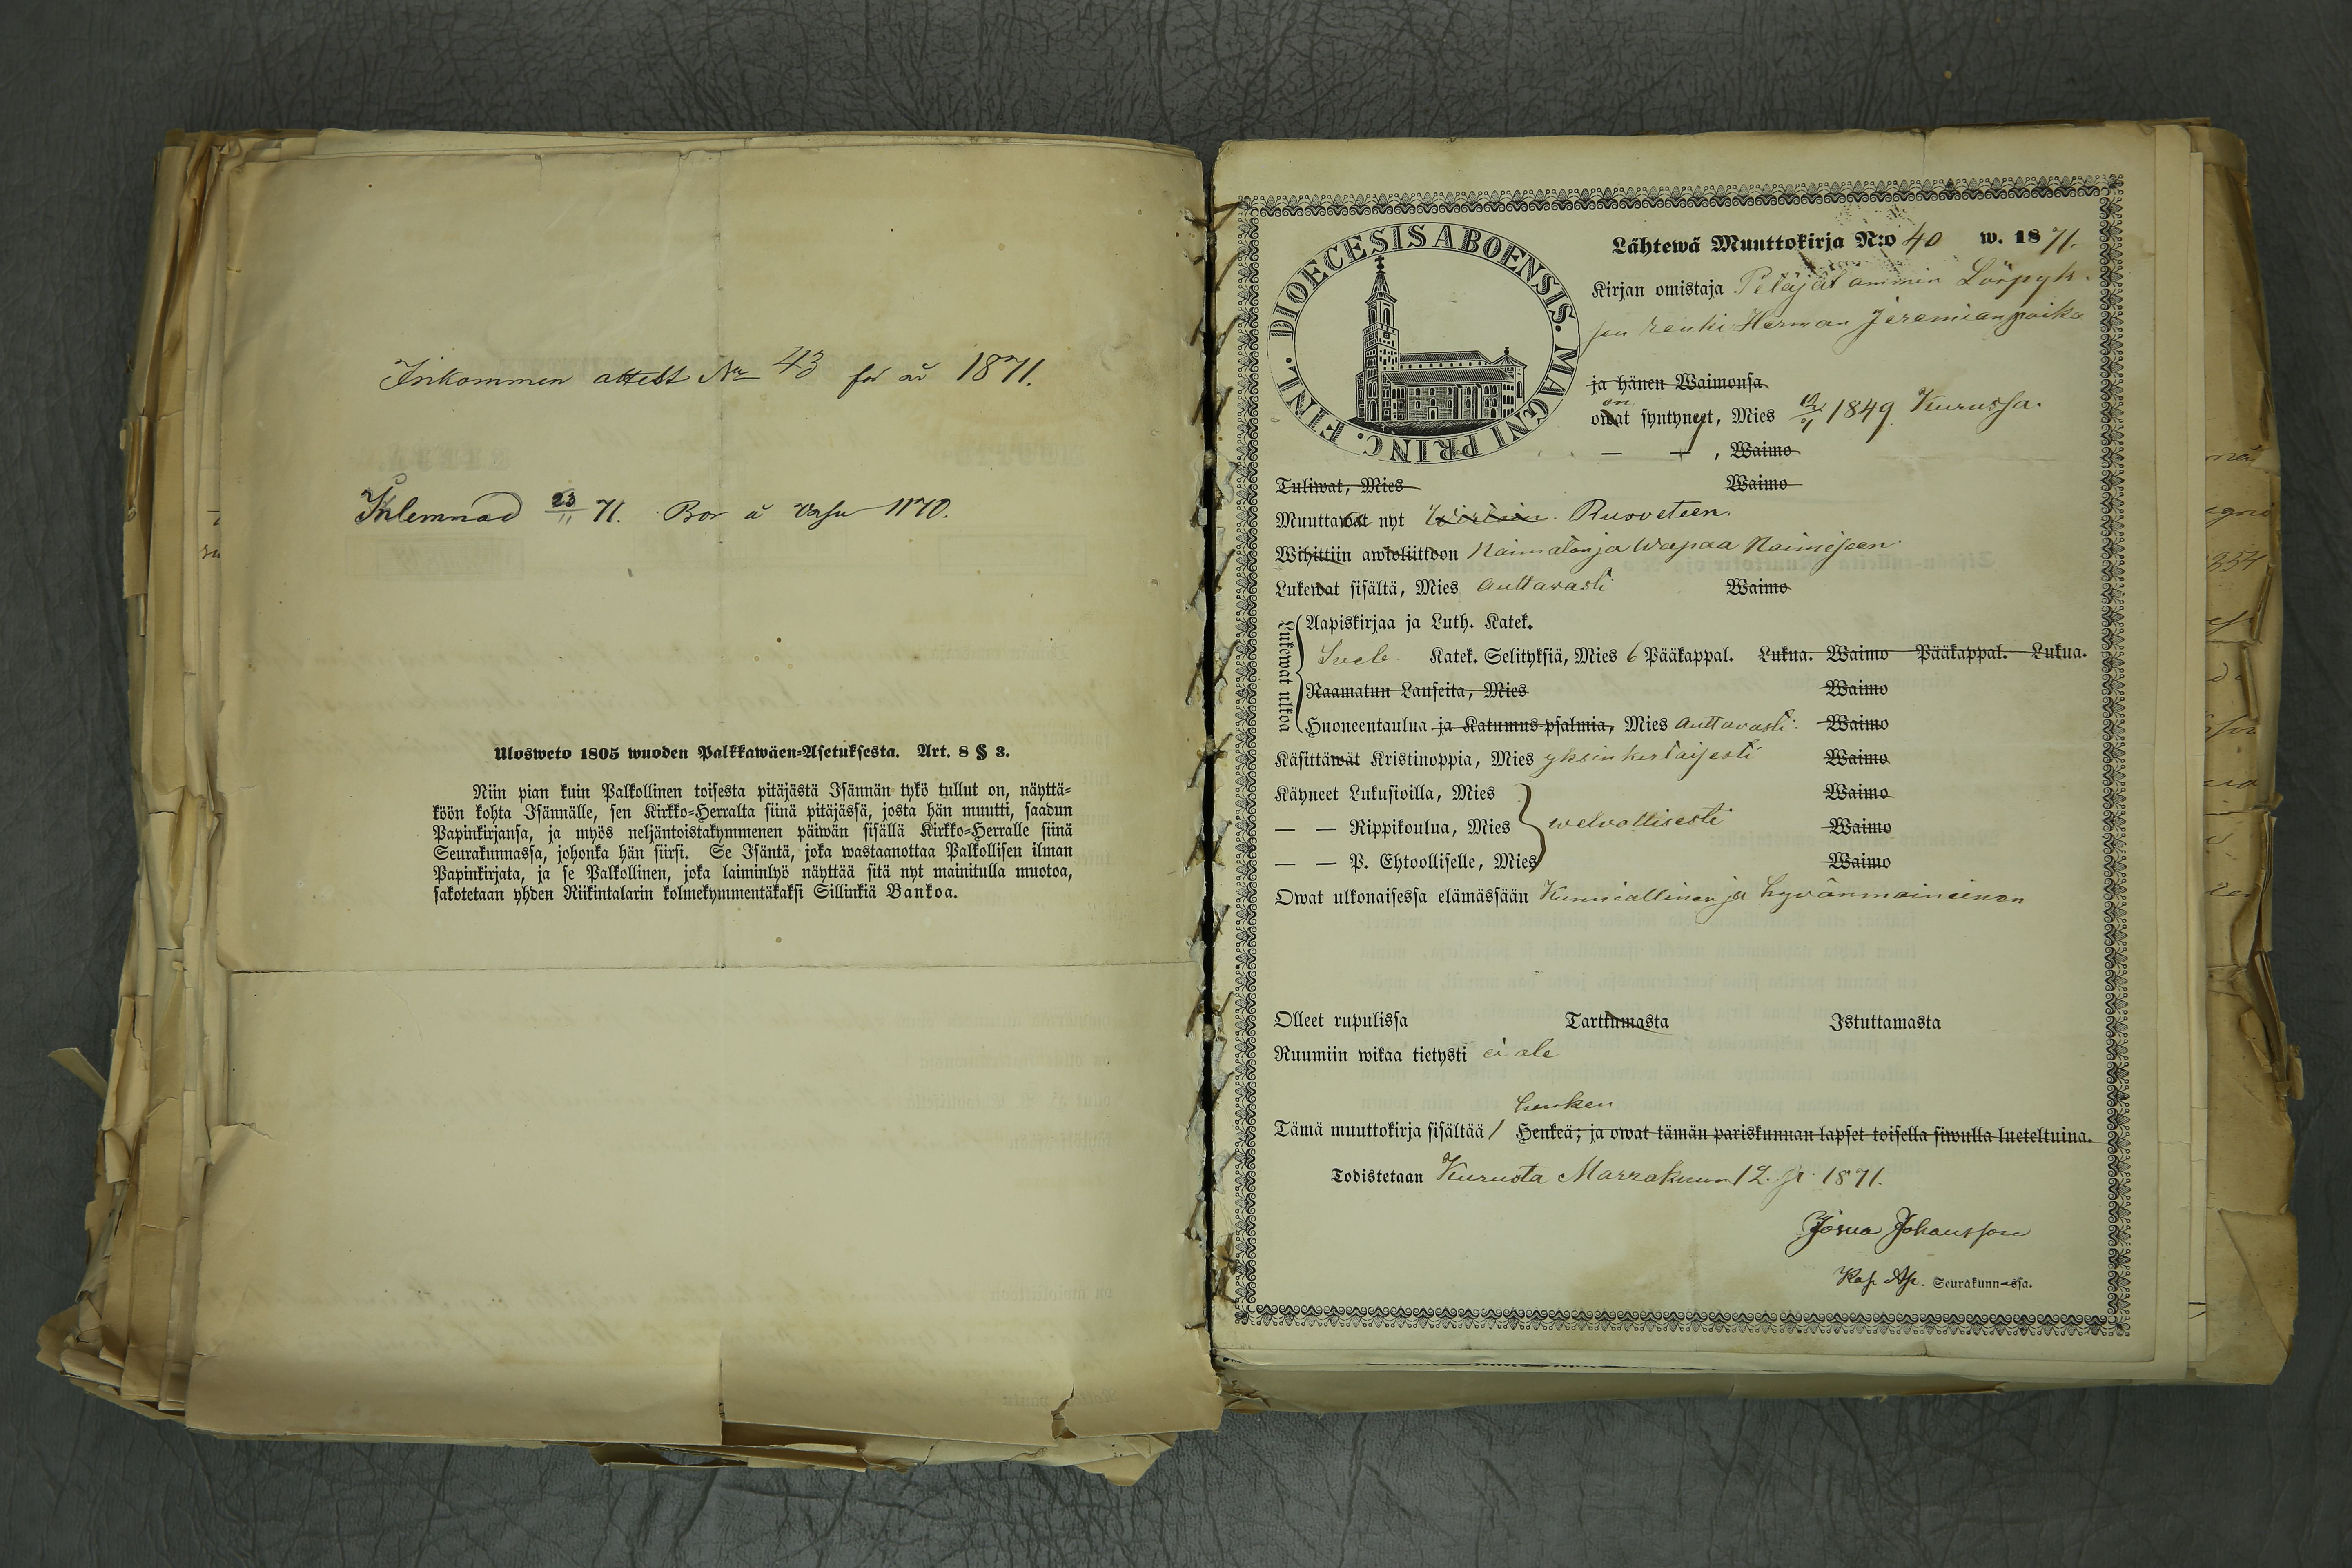 Inkommen attest No 43 för år 1871.
Inlemnad 23/11 71. Bor å 1170.
Ulosweto 1805 wuoden Palkkawäen-Asetuksesta. Art. 8 § 3.
Niin pian kuin Palkollinen toisesta pitäjästä Isännän tykö tullut on, näyttä-
köön kohta Isännälle, sen Kirkko-Herralta siinä pitäjässä, josta hän muutti, saadun
Papinkirjansa, ja myös neljäntoistakymmenen päiwän sisällä Kirkko-Herralle siinä
Seurakunnassa, johonka hän siirsi. Se Isäntä, joka wastaanottaa Palkollisen ilman
Papinkirjata, ja se Palkollinen, joka laiminlyö näyttää sitä nyt mainitulla muotoa,
sakotetaan yhden Riikintalarin kolmekymmentäkaksi Sillinkiä Bankoa.
DIOECESIS ABOENSIS. MAGNI PRINC. FINL.
Lähtewä Muuttokirja N:o 40 w. 1871.
Kirjan omistaja Petäjälammin Lörpyk-
sen renki Herman Jeremianpoika
ja hänen Waimonsa
on
owat syntyneet, Mies 1849 Kurussa.
— — , Waimo
Tuliwat, Mies Waimo
Muuttawat nyt Ruoveteen.
Wihittiin awioliittoon Naimaton ja Wapaa Naimiseen
Lukewat sisältä, Mies auttavasti Waimo
Lukewat ulkoa
Aapiskirjaa ja Luth. Katek.
Sveb. Katek. Selityksiä, Mies 6 Pääkappal. Lukua. Waimo Pääkappal. Lukua.
Raamatun Lauseita, Mies Waimo
Huoneentaulua ja Katumus-psalmia, Mies auttavasti. Waimo
Käsittäwät Kristinoppia, Mies yksinkertaisesti Waimo
Käyneet Lukusioilla, Mies Waimo
— — Rippikoulua, Mies welvollisesti Waimo
— — P. Ehtoolliselle, Mies Waimo
Owat ulkonaisessa elämässään Kunniallinen ja hyvänmaineinen
Olleet rupulissa Tarttumasta Istuttamasta
Ruumiin wikaa tietysti ei ole
henken
Tämä muuttokirja sisältää 1 Henkeä; ja owat tämän pariskunnan lapset toisella siwulla lueteltuina.
Todistetaan Kurusta Marrakuun 12. p. 1871.
Josua Johansson
Kap. Ap. Seurakunnassa.